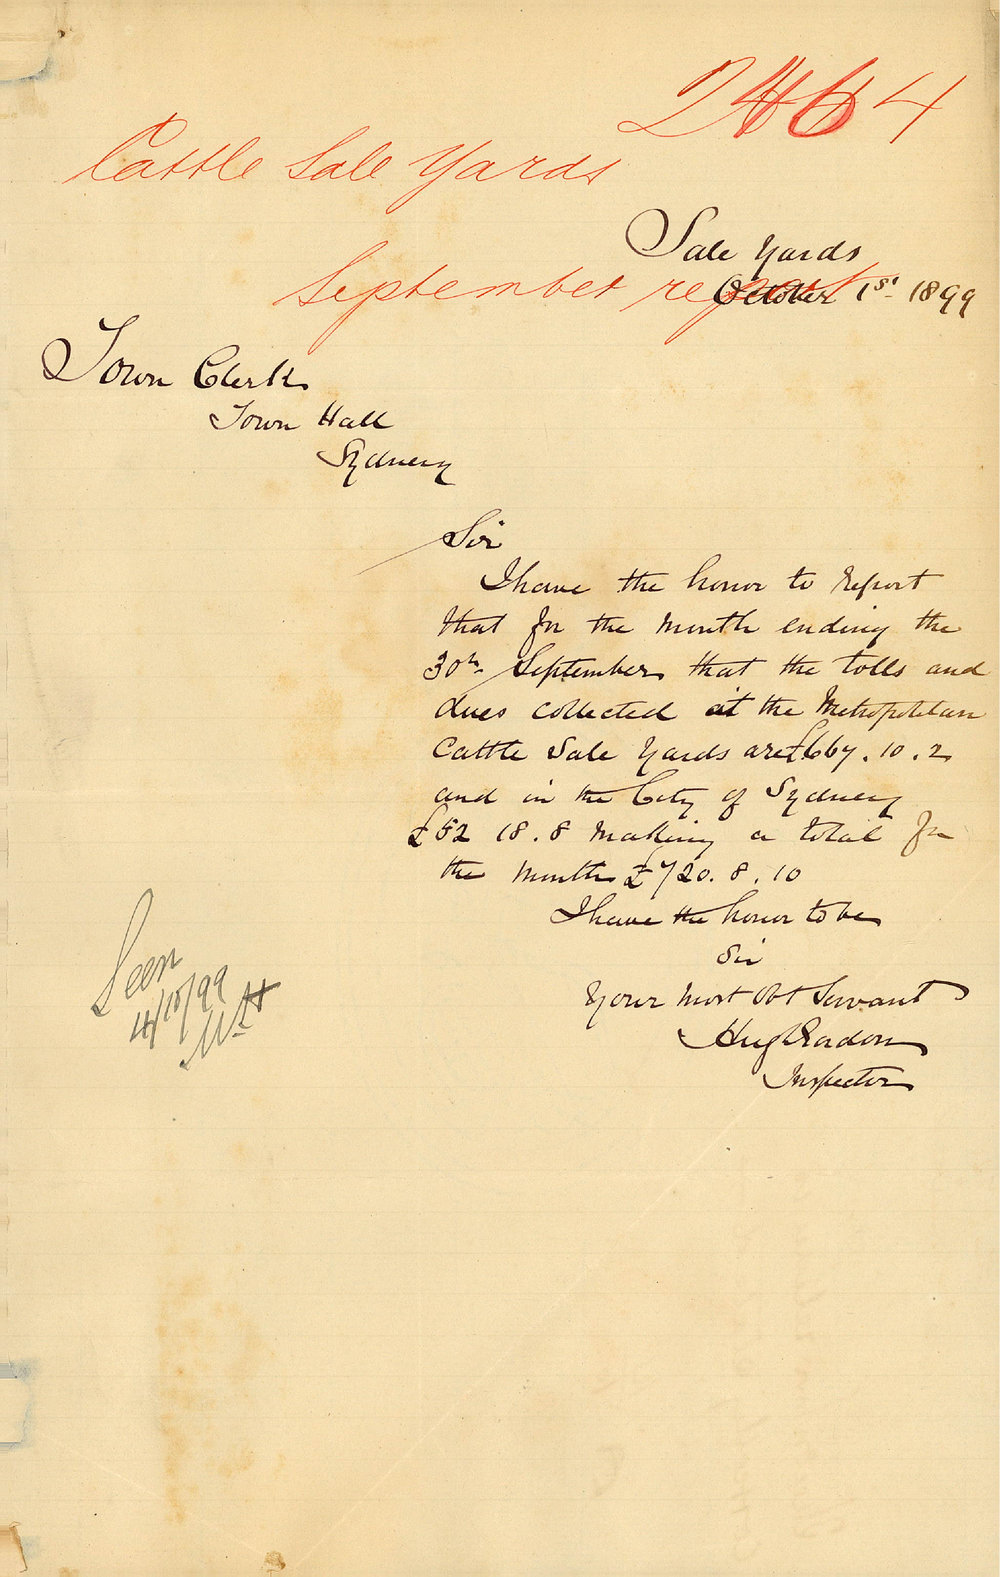 2464
Cattle Sale Yards
Sale Yards
September report
October 1st 1899
Town Clerk
Town Hall
Sydney
Sir
I have the honor to report
that for the month ending the
30th September that the tolls and
dues collected at the Metropolitan
Cattle Sale Yards are £667.10.2
and in the City of Sydney
£52 18.8 making a total for
the month £720.8.10
I have the honor to be
Sir
Your most Obt Servant
Hugh
Inspector
Seen
4/10/99